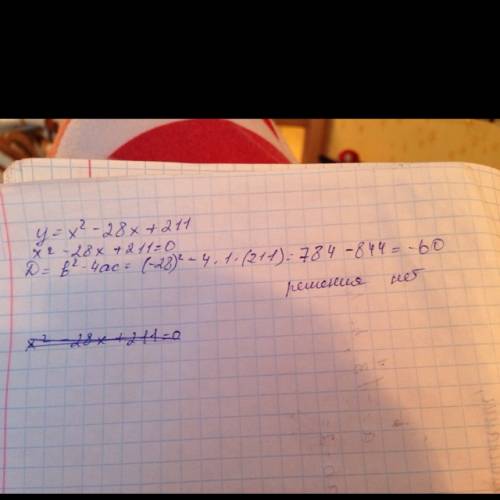 y = x² - 28x + 211
x² - 28x + 211 = 0
D = b² - 4ac = (-28)² - 4 · 1 · (211) = 784 - 844 = -60
решения нет
x² - 28x + 211 = 0